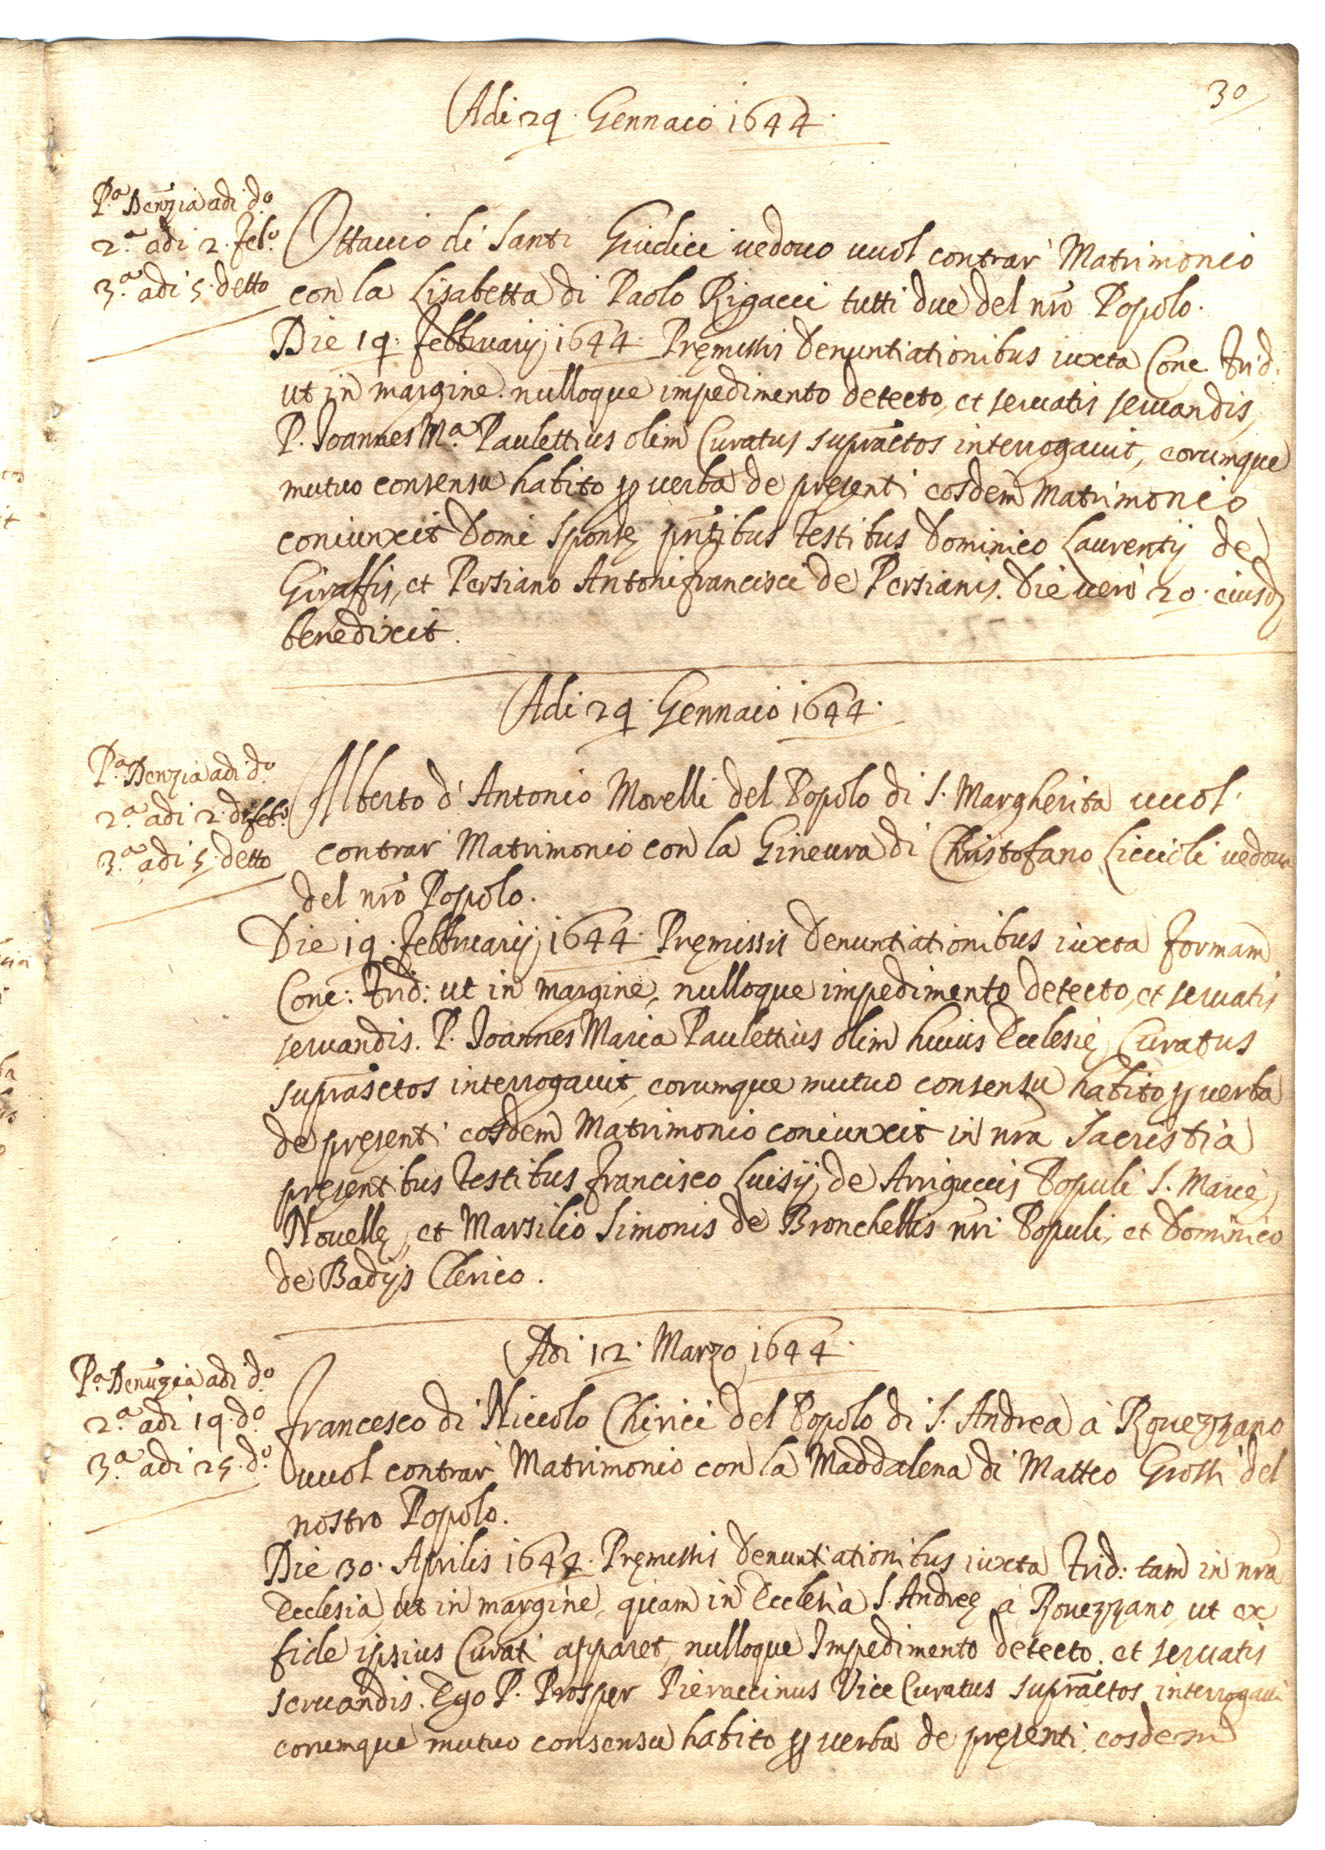 30
Adi 29. Gennaio 1644.
P.a Denzia adi d.o
2.a adi 2. feb.o
3.a adi 5. detto
Ottavio di Santi Giudici vedovo vuol contrar Matrimonio
con la Lisabetta di Paolo Rigacci tutti due del nro Popolo.
Die 19. februarij 1644. Pręmissis Denuntiationibus iuxta Conc. Trid.
ut in margine. nulloque impedimento detecto, et servatis servandis,
P. Joannes M.a Paulettius olim Curatus supradctos interrogavit, eorumque
mutuo consensu habito p verba de pręsenti eosdem Matrimonio
coniunxit Domi Sponsę pntibus Testibus Dominico Laurentij de
Giraffis, et Persiano Antonifrancisci de Persianis. Die vero 20. eiusd
benedixit.
Adi 29. Gennaio 1644.
P.a Denzia adi d.o
2.a adi 2. di feb.o
3.a adi 5. detto
Alberto d'Antonio Morelli del Popolo di S. Margherita vuol
contrar Matrimonio con la Ginevra di Christofano Liccioli vedova
del nro Popolo.
Die 19. februarij 1644. Pręmissis Denuntiationibus iuxta formam
Conc: Trid: ut in margine, nulloque impedimento detecto, et servatis
servandis. P. Joannes Maria Paulettius olim huius Ecclesię Curatus
suprasctos interrogavit, eorumque mutuo consensu habito p verba
de pręsenti eosdem Matrimonio coniunxit in nra Sacristia
pręsentibus Testibus francisco Luisij de Arriguccis Populi S. Marię
Novellę, et Marsilio Simonis de Bronchellis nri Populi, et Dominico
de Badijs Clerico.
Adi 12. Marzo 1644.
P.a Denuzia adi d.o
2.a adi 19. d.o
3.a adi 25. d.o
francesco di Niccolo Chirici del Popolo di S. Andrea à Rovezzano
vuol contrar Matrimonio con la Maddalena di Matteo Grossi del
nostro Popolo.
Die 30. Aprilis 1644. Pręmissis Denuntiationibus iuxta Trid: tam in nra
Ecclesia ut in margine, quam in Ecclesia S. Andreę à Rovezzano, ut ex
fide ipsius Curati apparet, nulloque Impedimento detecto. et servatis
servandis. Ego P. Prosper Pieraccinus Vice Curatus supradctos interrogavi
eorumque mutuo consensu habito p verba de pręsenti eosdem